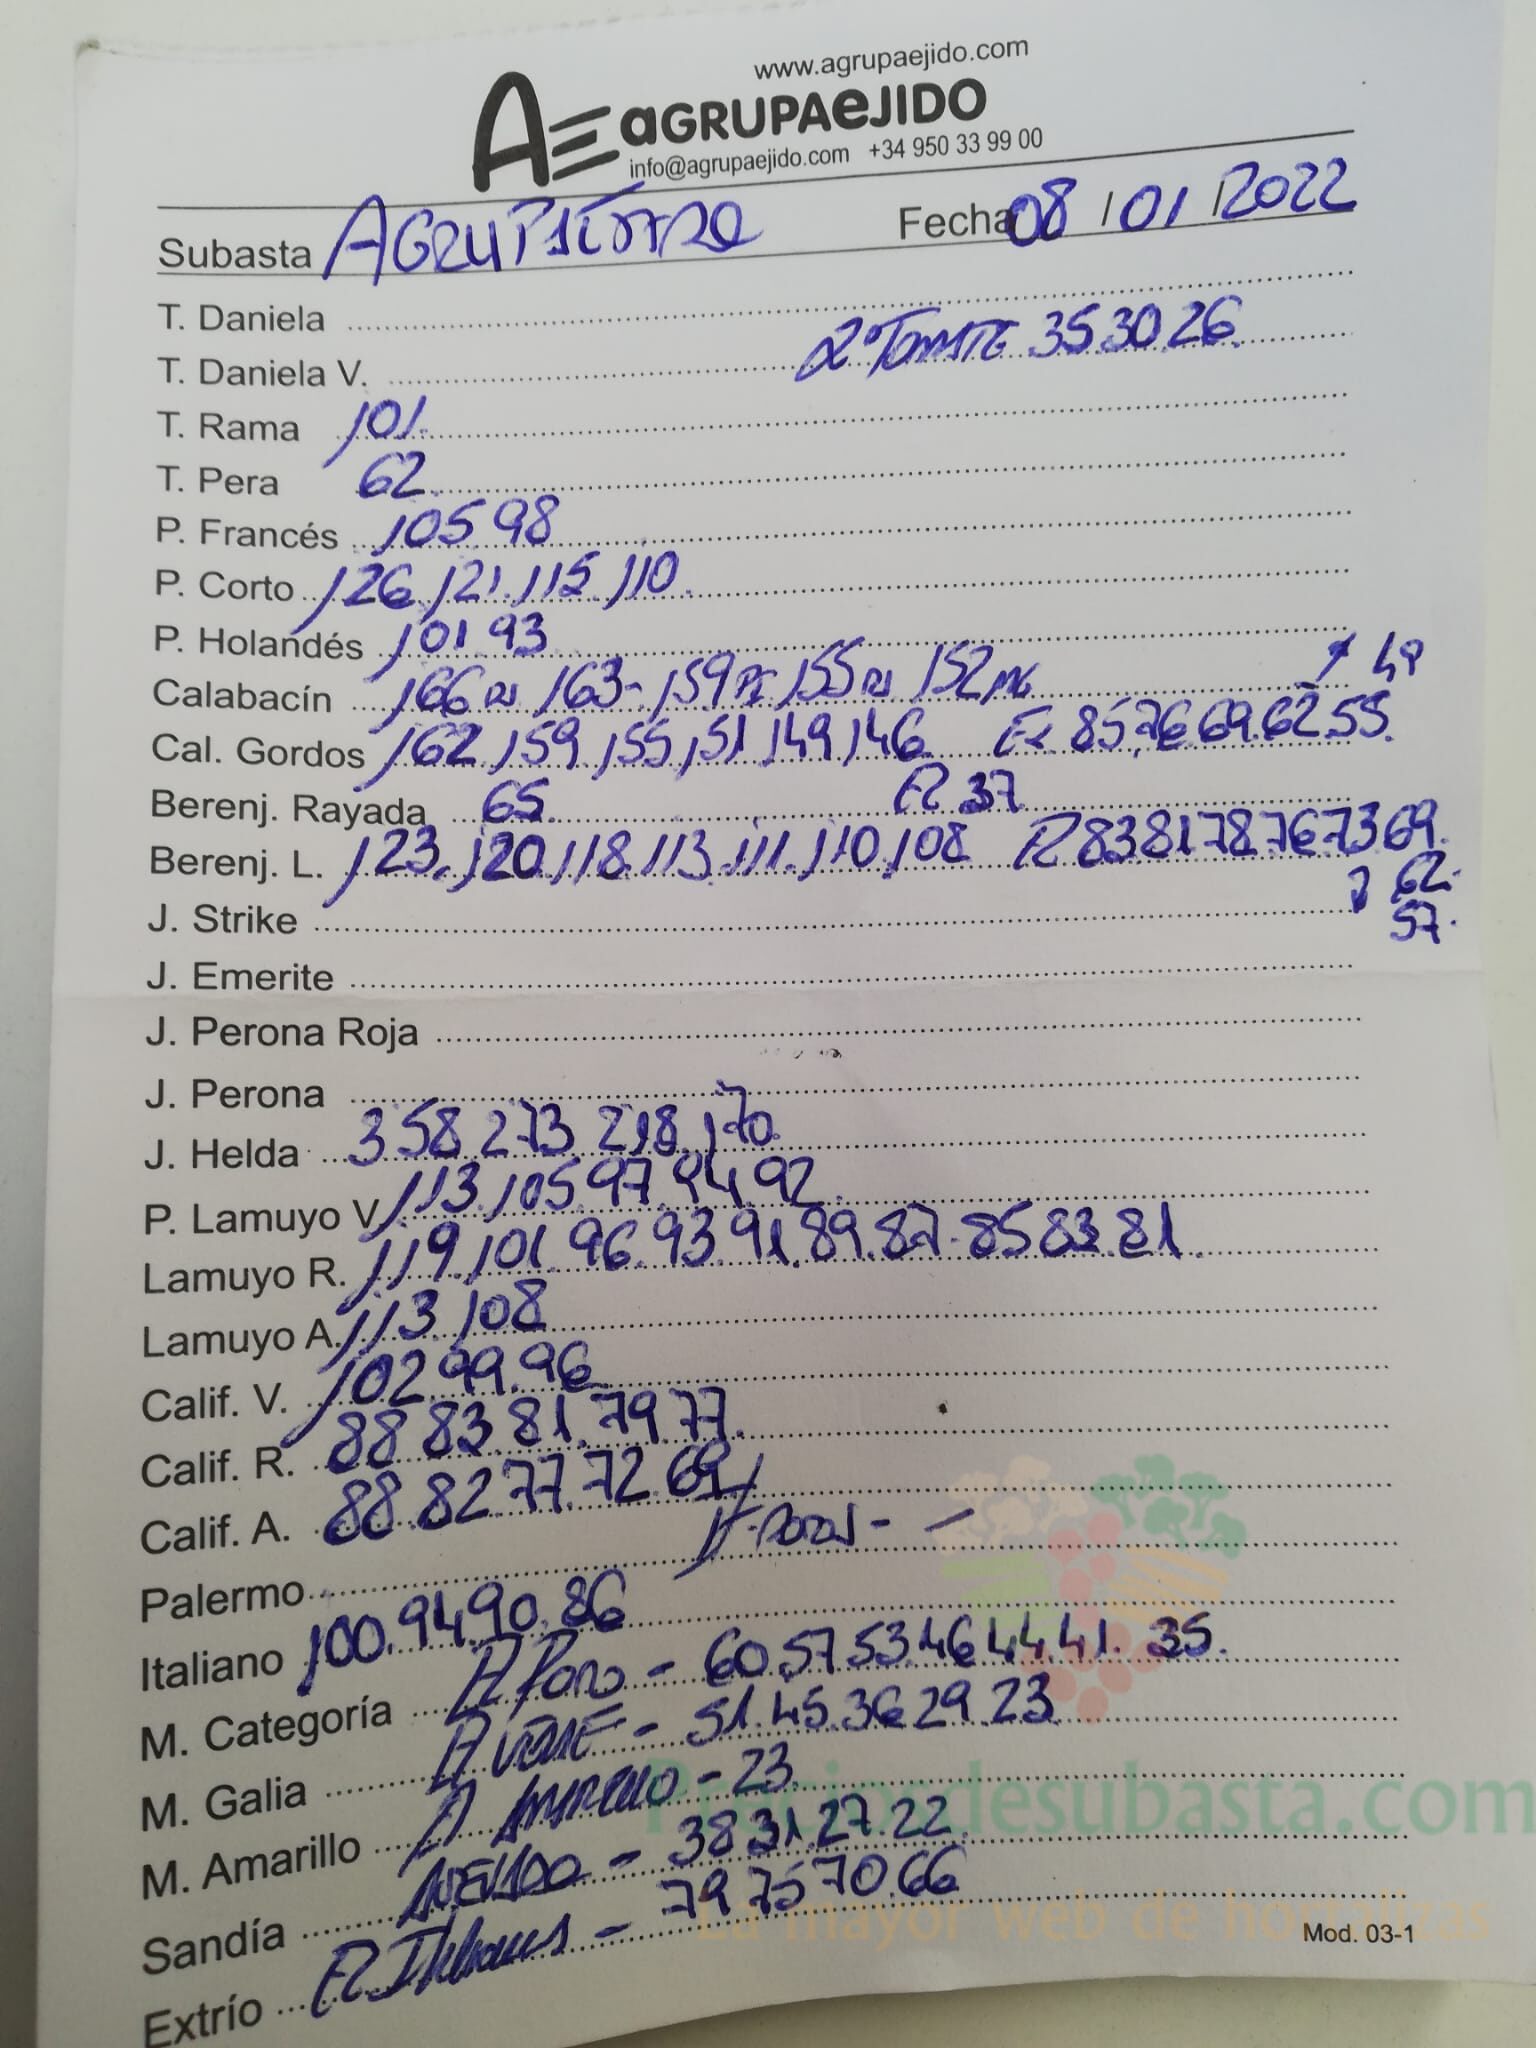 www.agrupaejido.com
AE aGRUPAeJIDO
info@agrupaejido.com +34 950 33 99 00
Subasta Fecha 08 / 01 / 2022
T. Daniela
T. Daniela V. 2º TOMATE 35.30.26.
T. Rama 101.
T. Pera 62.
P. Francés 105 98
P. Corto 126.121.115.110.
P. Holandés 101 93
Calabacín 166 163- 159 155 152 49
Cal. Gordos 162.159.155.151.149.146. 85.76.69.62.55.
Berenj. Rayada 65. 37
Berenj. L. 123.120.118.113.111.110.108 83 81 78 76 73 69.
62.
J. Strike 57.
J. Emerite
J. Perona Roja
J. Perona
J. Helda 358.273.218.170.
P. Lamuyo V. 113.105.97.94.92.
Lamuyo R. 119.101.96.93.91.89.87.85 83.81.
Lamuyo A. 113.108
Calif. V. 102.99.96
Calif. R. 88.83.81.79 77.
Calif. A. 88.82.77.72.69
Palermo
Italiano 100.94.90.86
M. Categoría - 60.57.53.46.44.41.35.
M. Galia - 51.45.36.29.23
M. Amarillo - 23.
Sandía - 38.31.27.22.
Extrío - 79.75.70.66
Preciosdesubasta.com
La mayor web de hortalizas
Mod. 03-1